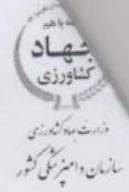 با هم
جهاد
کشاورزی
وزارت جهاد کشاورزی
سازمان دامپزشکی کشور